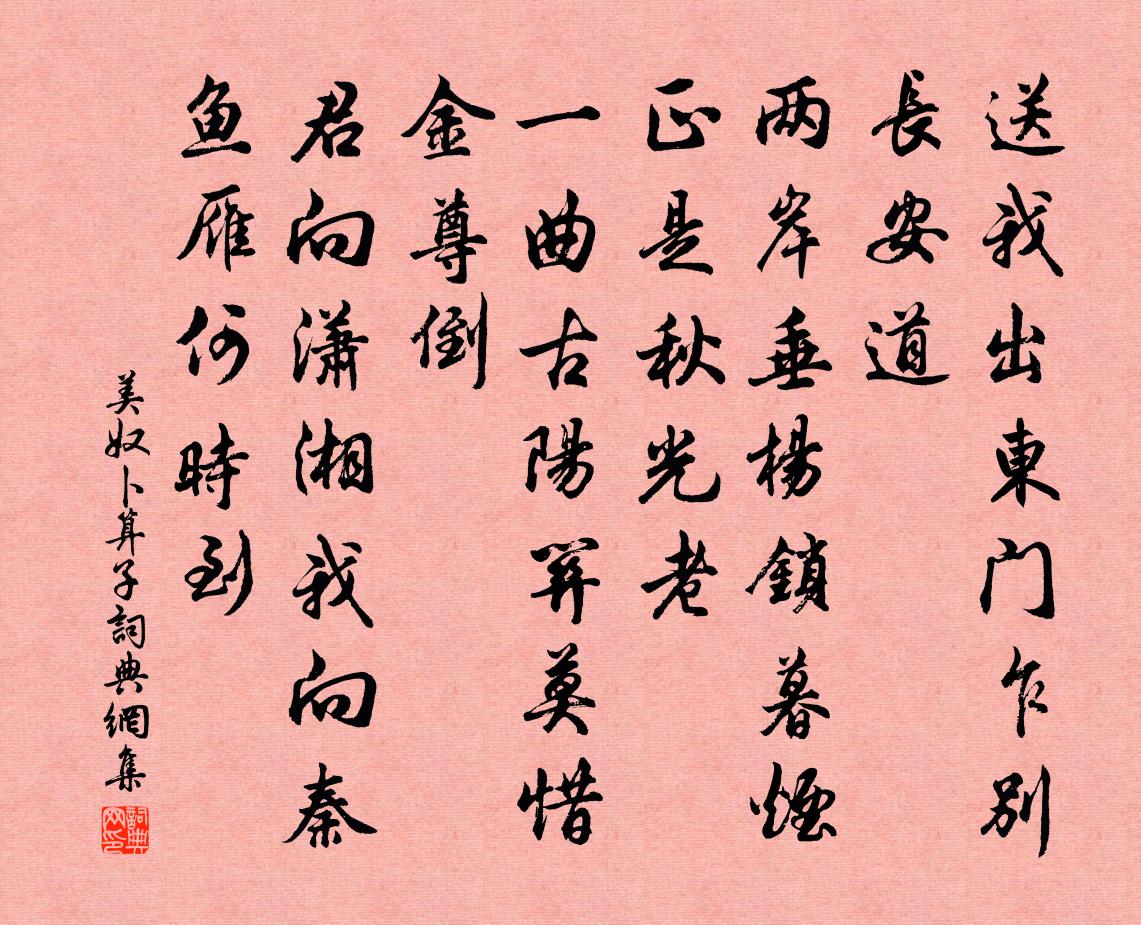 送我出東门乍別
長安道
两岸垂楊鎖暮煙
正是秋光老
一曲古陽關莫惜
金尊倒
君向潇湘我向秦
魚雁何時到
美奴卜算子詞典網集
詞典网印